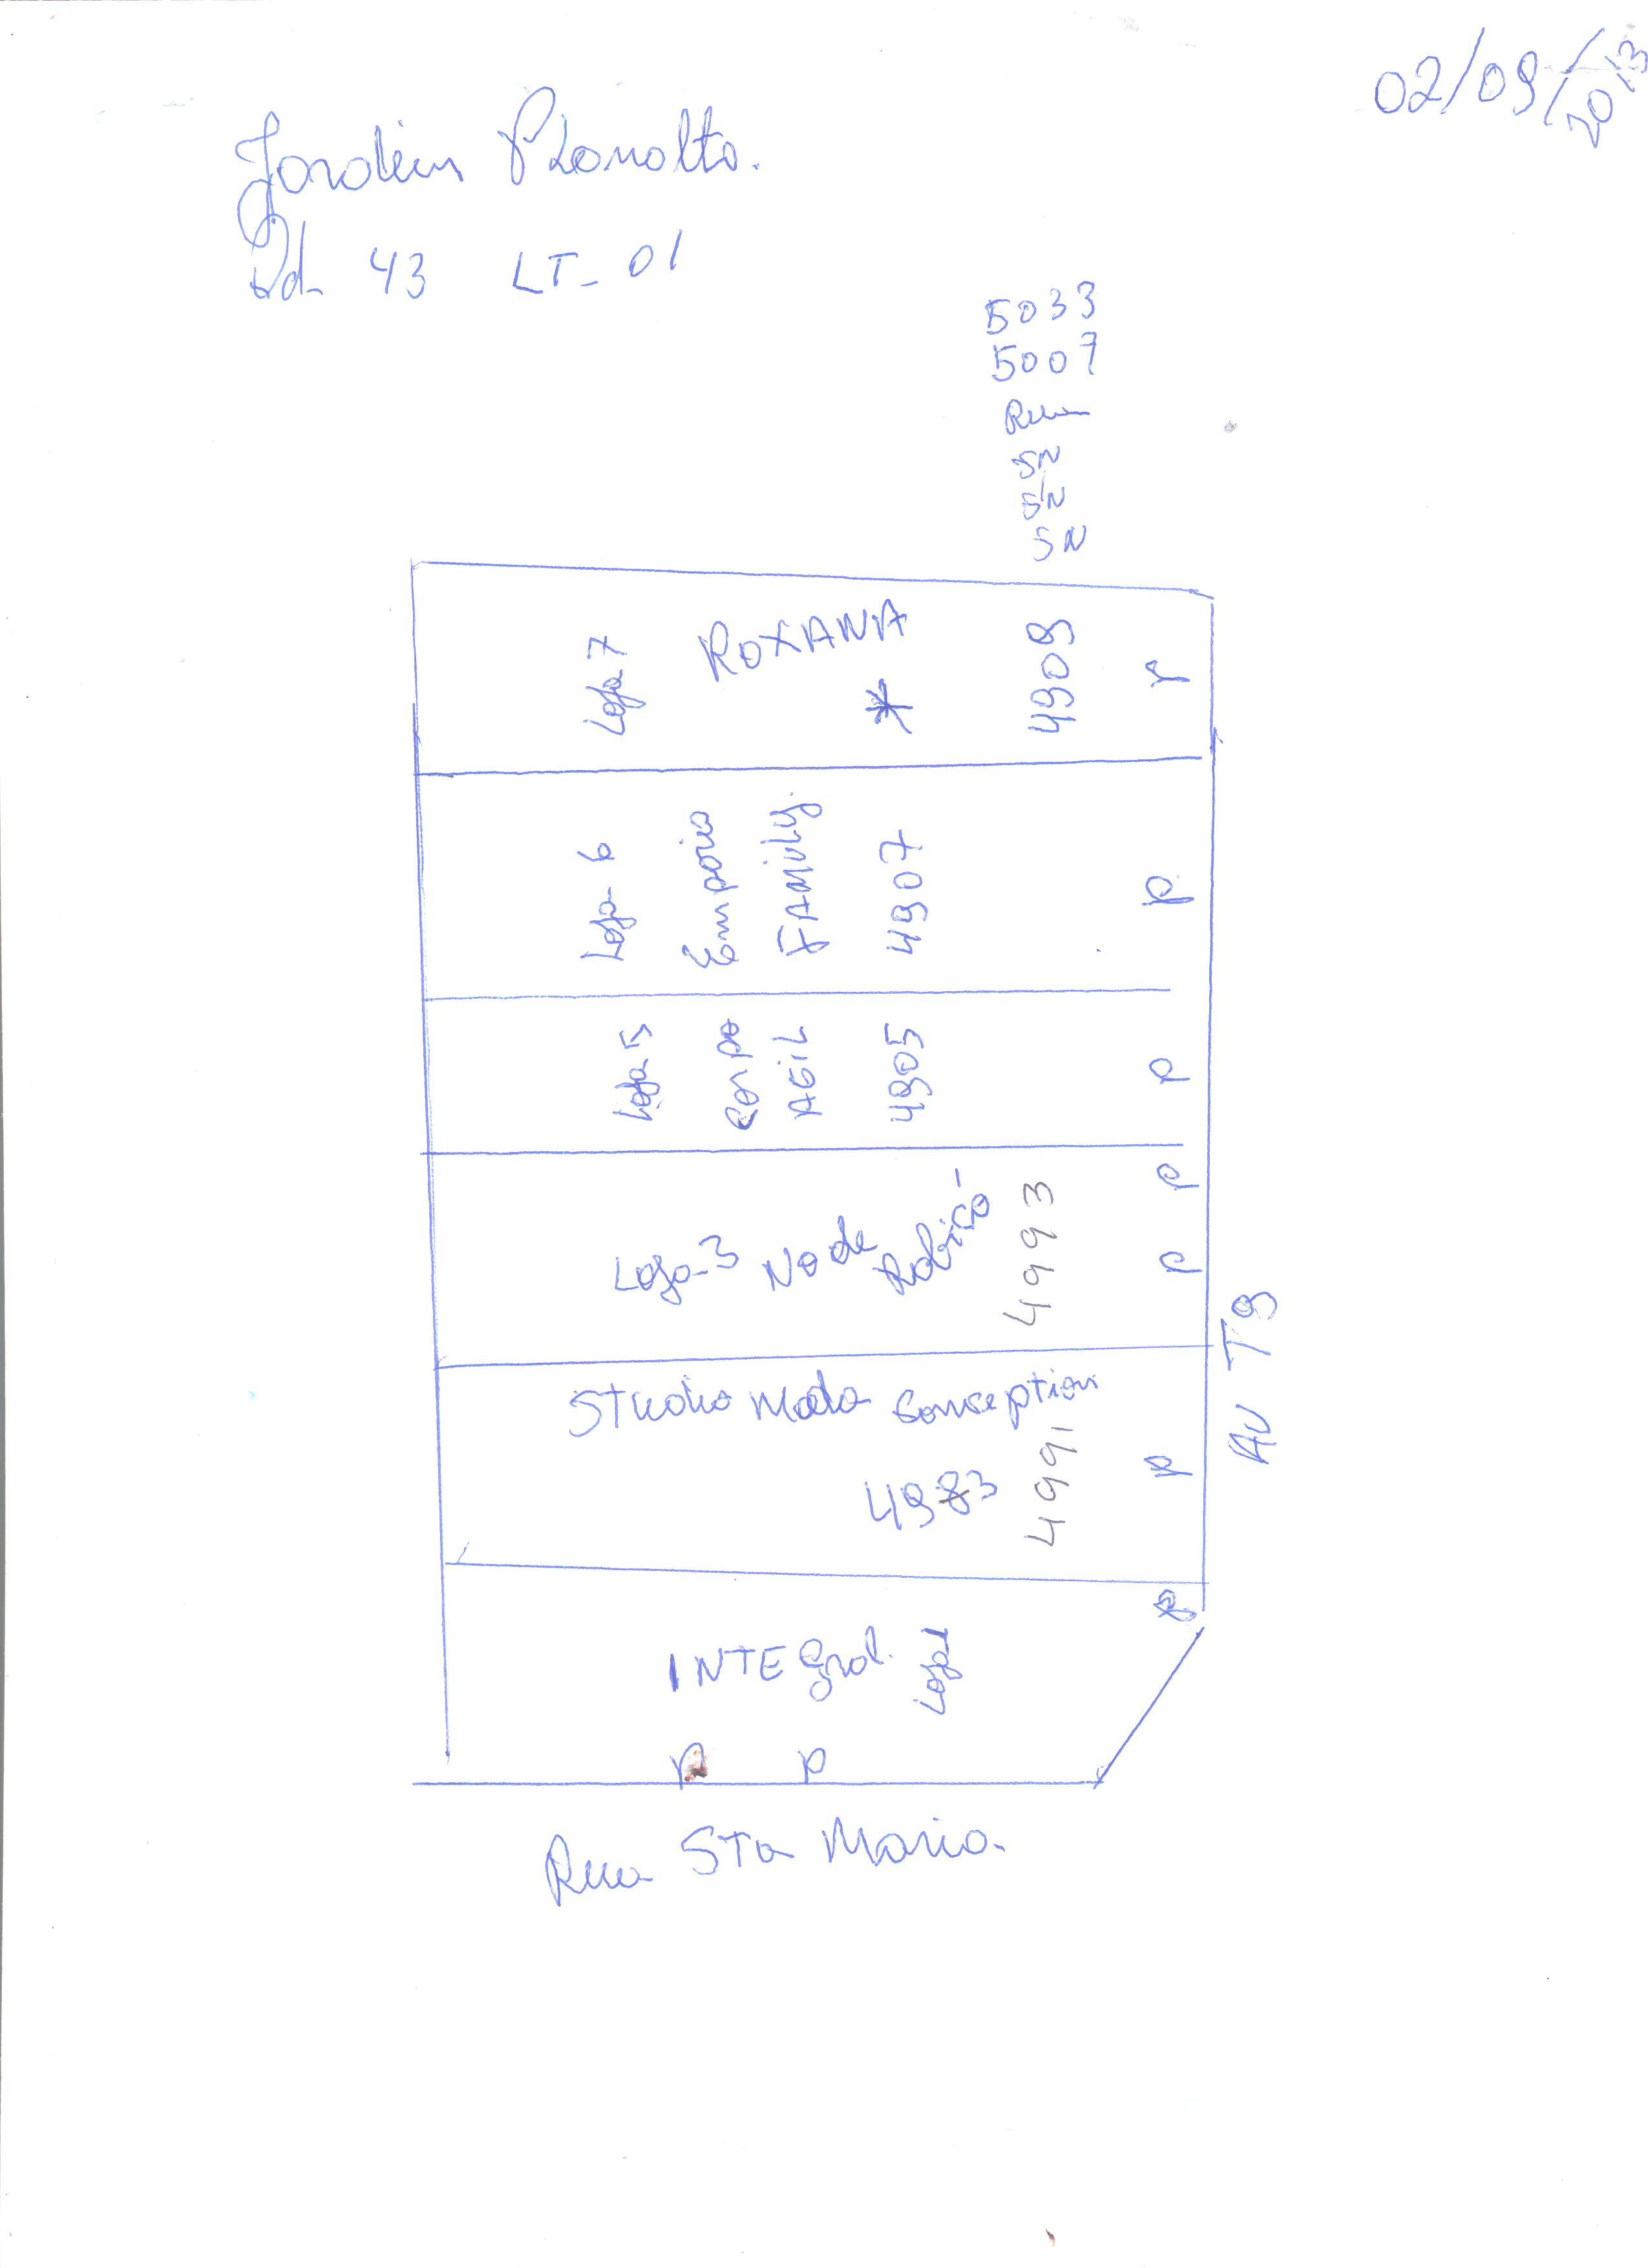 02/09/2013
Jardim Planalto.
Qd- 43 LT- 01
5033
5007
Rua
SN
S/N
SN
Loja 7 ROXANA * 4909 P
Loja- 6 Emporio FAmily. 4907 P
Loja 5 Corpo AGiL 4905 P
Loja-3 No de 4993 P P
Studio Moda Conseption
4983 4991 P
AV T9
INTEgral. Loja 1 P
P P
Rua STa Maria.